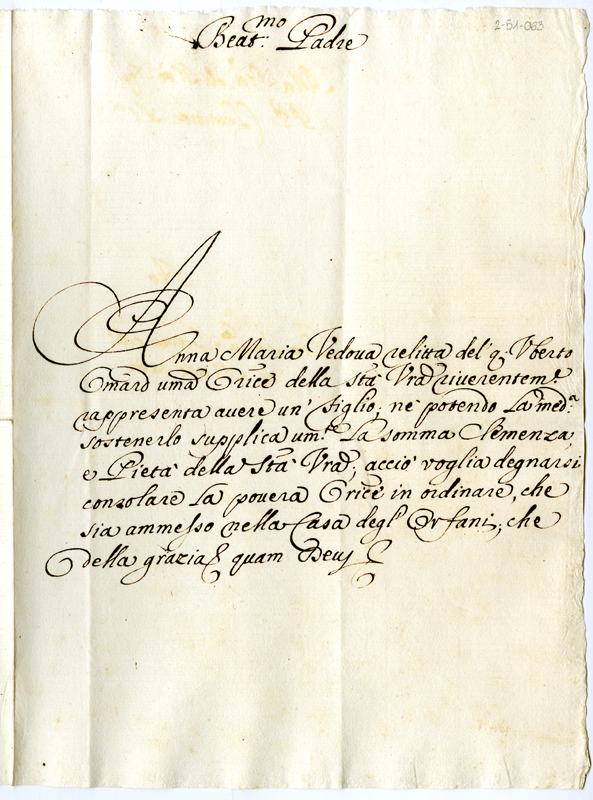 2-51-063
Beat.mo Padre
Anna Maria Vedova relitta del q. Vberto
Omard uma Orice della Sta Vra riverentem.e
rappresenta avere un' figlio; ne potendo la med.a
sostenerlo supplica um.te La somma Clemenza,
e Pietà della Sta Vra, acciò voglia degnarsi
consolare la povera Orice in ordinare, che
sia ammesso nella Casa degl' Orfani; che
della grazia quam Deus